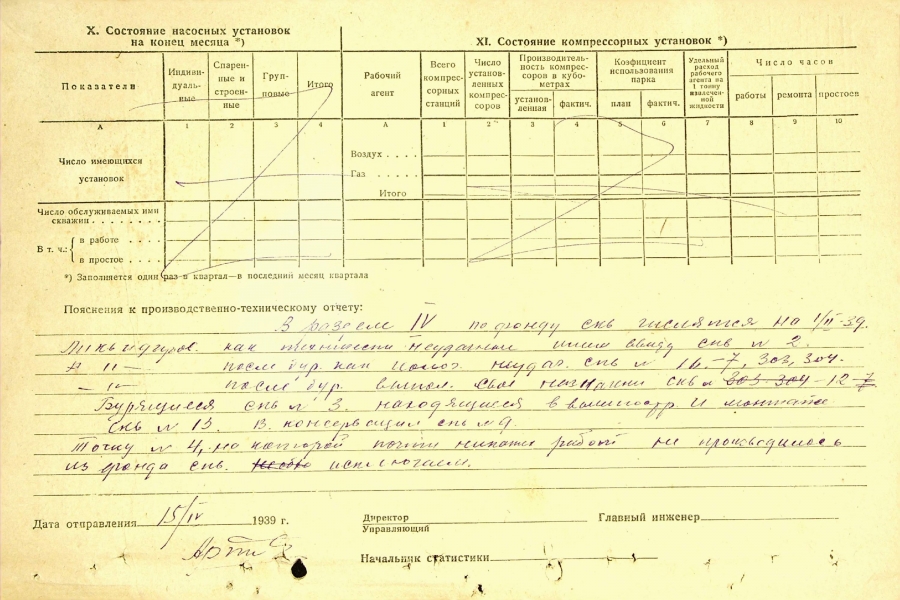 X. Состояние насосных установок
на конец месяца *)
XI. Состояние компрессорных установок *)
Показатели
Индиви-
дуаль-
ные
Спарен-
ные и
строен-
ные
Груп-
повые
Итого
Рабочий
агент
Всего
компрес-
сорных
станций
Число
установ-
ленных
компрес-
соров
Производитель-
ность компрес-
соров в кубо-
метрах
установ-
ленная
фактич.
Коэфициент
использования
парка
план
фактич.
Удельный
расход
рабочего
агента на
1 тонну
извлечен-
ной
жидкости
Число часов
работы
ремонта
простоев
А 1 2 3 4 А 1 2 3 4 5 6 7 8 9 10
Число имеющихся
установок
Воздух . . . .
Газ . . . . .
Итого
Число обслуживаемых ими
скважин . . . . . . . .
В т. ч.:
в работе . . . .
в простое . . . .
*) Заполняется один раз в квартал—в последний месяц квартала
Пояснения к производственно-техническому отчету:
В разделе IV по фонду скв числятся на 1/II-39.
как технически неудачной скв № 2.
— " — после бур. как неудач. скв № 1б.-7, 303, 304.
— " — после бур. выполн. свое скв № 303-304-12-7
Бурящиеся скв № 3. находящиеся в и монтаже
Скв № 13. В консервации скв
Точку № 4, на которой почти никаких работ не производилось
из фонда скв. исключаем.
Дата отправления 15/IV 1939 г.
Директор
Управляющий
Главный инженер
Начальник статистики